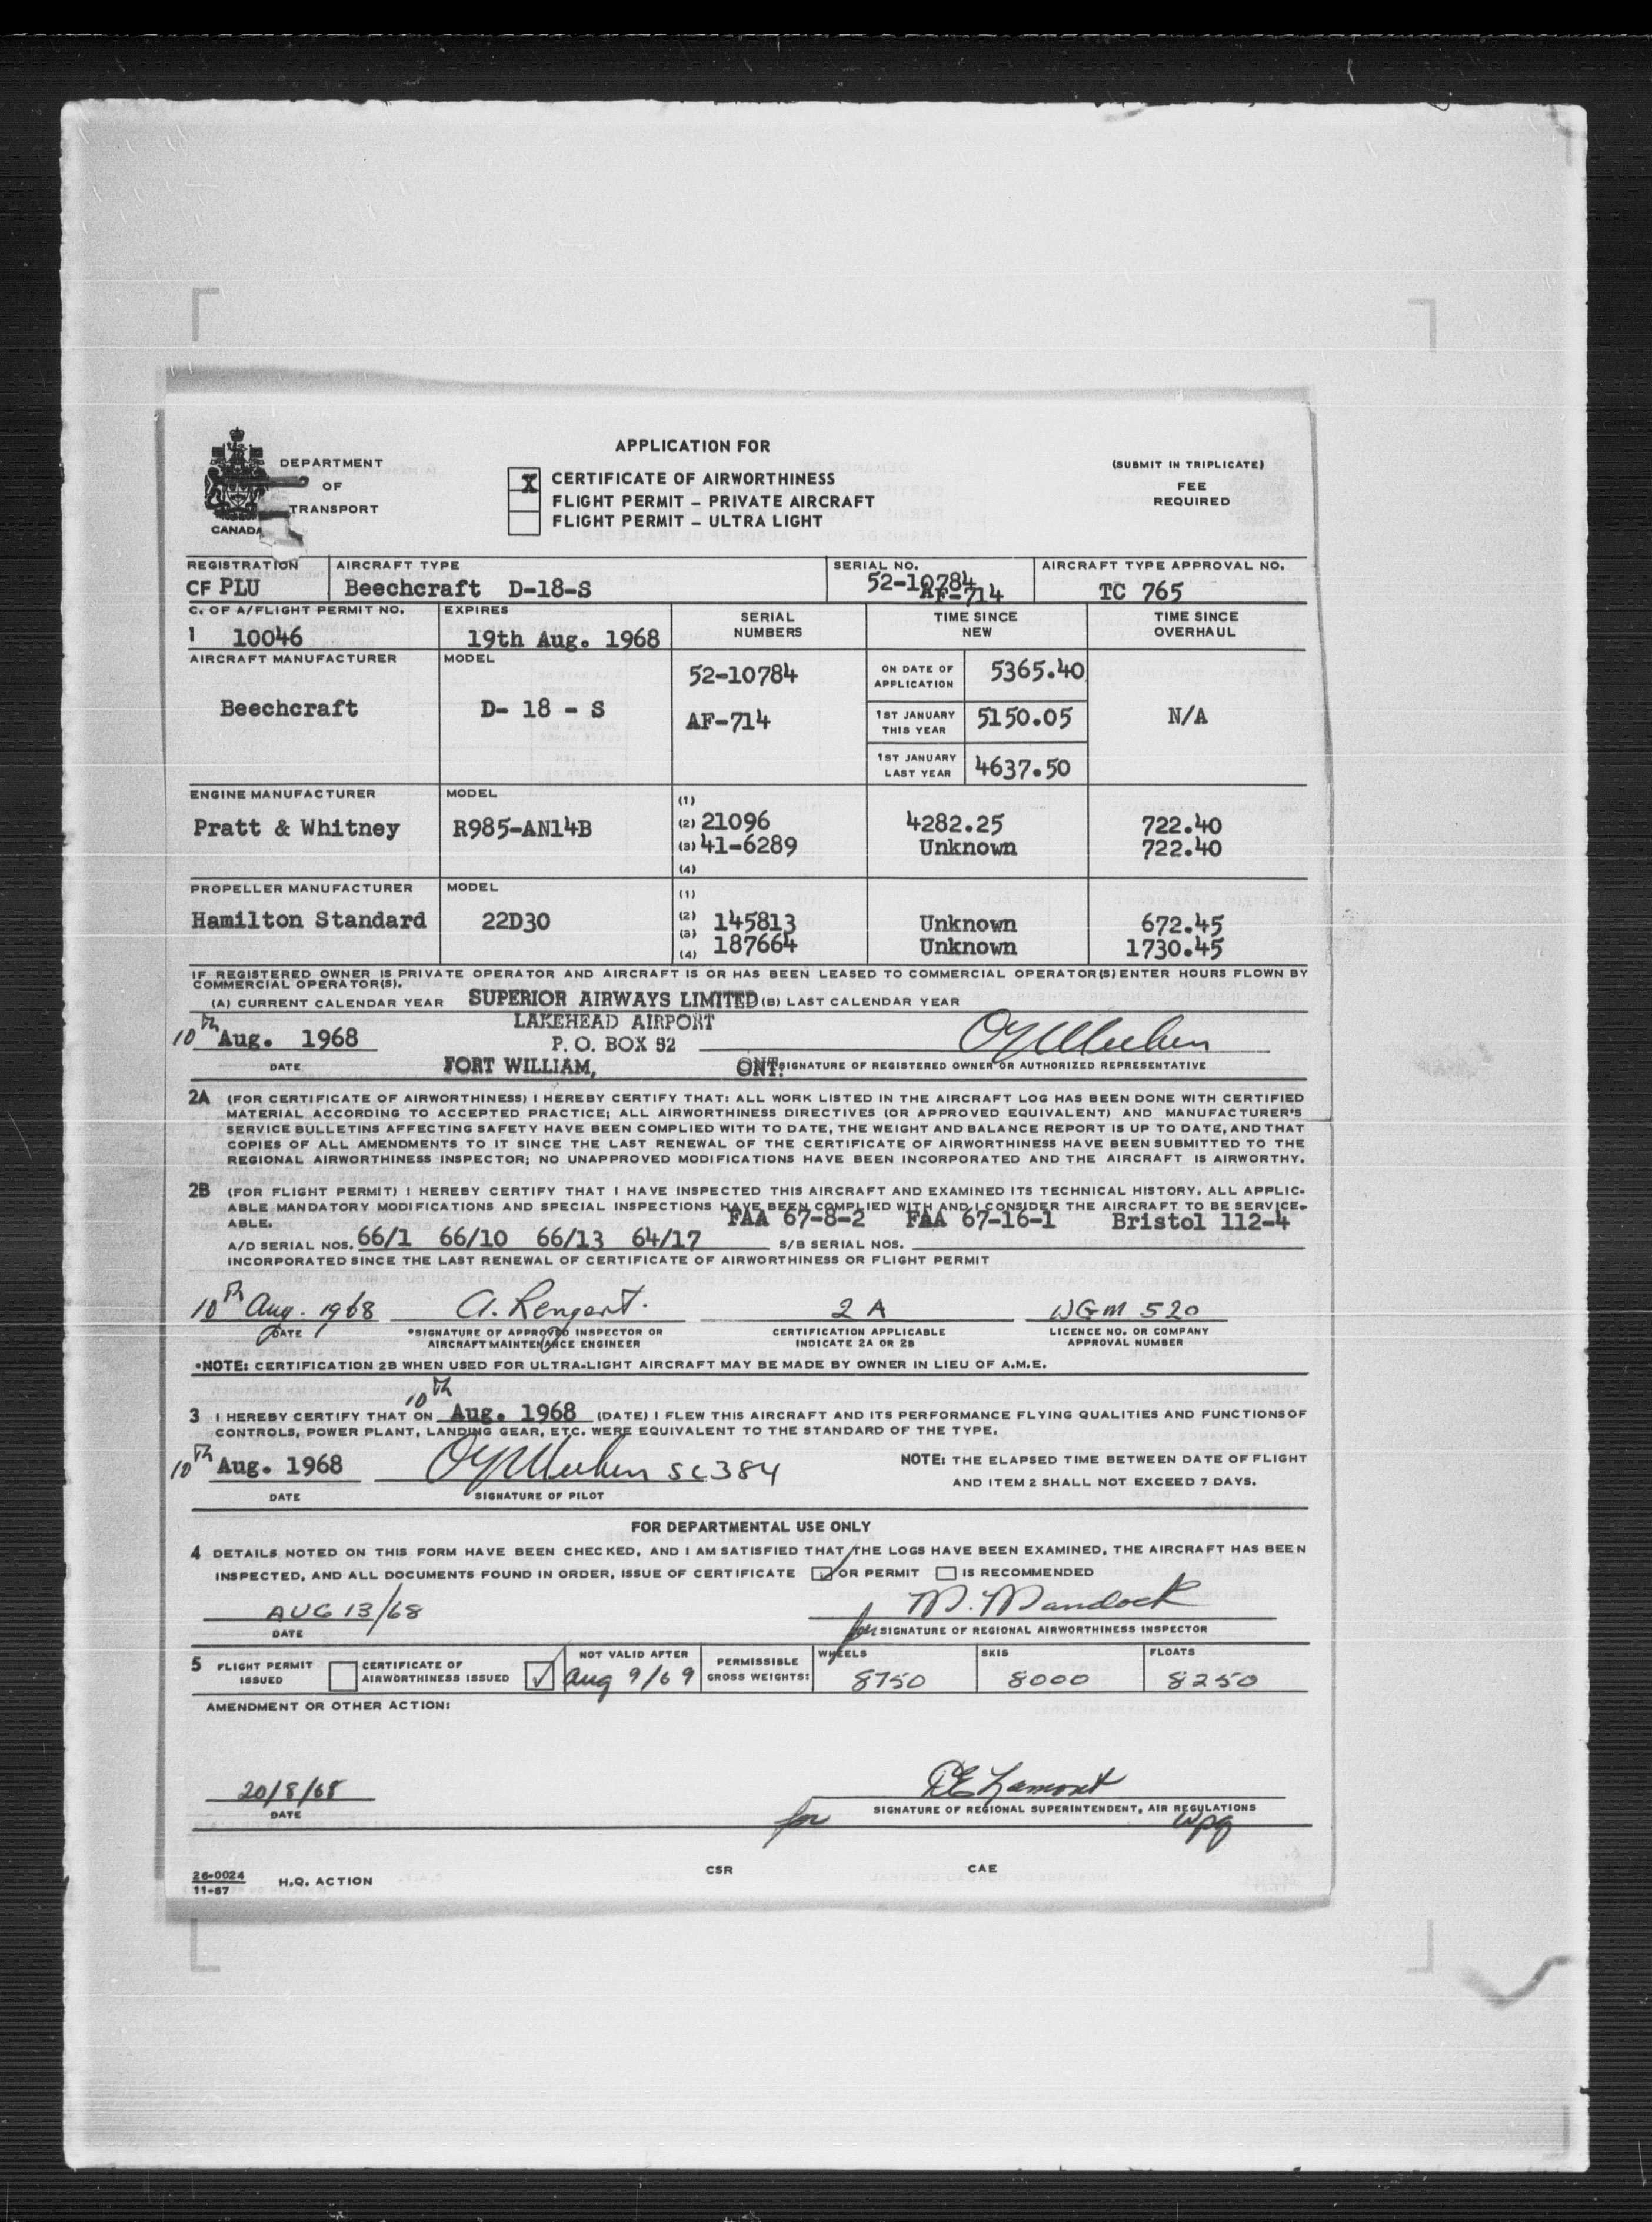 DEPARTMENT
OF
TRANSPORT
CANADA
APPLICATION FOR
X CERTIFICATE OF AIRWORTHINESS
FLIGHT PERMIT – PRIVATE AIRCRAFT
FLIGHT PERMIT – ULTRA LIGHT
(SUBMIT IN TRIPLICATE)
FEE
REQUIRED
REGISTRATION AIRCRAFT TYPE SERIAL NO. AIRCRAFT TYPE APPROVAL NO.
CF PLU Beechcraft D-18-S 52-10784 AF-714 TC 765
C. OF A/FLIGHT PERMIT NO. EXPIRES SERIAL NUMBERS TIME SINCE NEW TIME SINCE OVERHAUL
1 10046 19th Aug. 1968
AIRCRAFT MANUFACTURER MODEL
Beechcraft D- 18 - S
52-10784
AF-714
ON DATE OF APPLICATION 5365.40
1ST JANUARY THIS YEAR 5150.05
1ST JANUARY LAST YEAR 4637.50
N/A
ENGINE MANUFACTURER MODEL (1)
Pratt & Whitney R985-AN14B (2) 21096 4282.25 722.40
(3) 41-6289 Unknown 722.40
(4)
PROPELLER MANUFACTURER MODEL (1)
Hamilton Standard 22D30 (2) 145813 Unknown 672.45
(3)
(4) 187664 Unknown 1730.45
IF REGISTERED OWNER IS PRIVATE OPERATOR AND AIRCRAFT IS OR HAS BEEN LEASED TO COMMERCIAL OPERATOR(S) ENTER HOURS FLOWN BY
COMMERCIAL OPERATOR(S).
(A) CURRENT CALENDAR YEAR SUPERIOR AIRWAYS LIMITED (B) LAST CALENDAR YEAR
LAKEHEAD AIRPORT
10th Aug. 1968 P. O. BOX 52
DATE FORT WILLIAM, ONT. SIGNATURE OF REGISTERED OWNER OR AUTHORIZED REPRESENTATIVE
2A (FOR CERTIFICATE OF AIRWORTHINESS) I HEREBY CERTIFY THAT: ALL WORK LISTED IN THE AIRCRAFT LOG HAS BEEN DONE WITH CERTIFIED
MATERIAL ACCORDING TO ACCEPTED PRACTICE; ALL AIRWORTHINESS DIRECTIVES (OR APPROVED EQUIVALENT) AND MANUFACTURER'S
SERVICE BULLETINS AFFECTING SAFETY HAVE BEEN COMPLIED WITH TO DATE, THE WEIGHT AND BALANCE REPORT IS UP TO DATE, AND THAT
COPIES OF ALL AMENDMENTS TO IT SINCE THE LAST RENEWAL OF THE CERTIFICATE OF AIRWORTHINESS HAVE BEEN SUBMITTED TO THE
REGIONAL AIRWORTHINESS INSPECTOR; NO UNAPPROVED MODIFICATIONS HAVE BEEN INCORPORATED AND THE AIRCRAFT IS AIRWORTHY.
2B (FOR FLIGHT PERMIT) I HEREBY CERTIFY THAT I HAVE INSPECTED THIS AIRCRAFT AND EXAMINED ITS TECHNICAL HISTORY. ALL APPLIC-
ABLE MANDATORY MODIFICATIONS AND SPECIAL INSPECTIONS HAVE BEEN COMPLIED WITH AND I CONSIDER THE AIRCRAFT TO BE SERVICE-
ABLE. FAA 67-8-2 FAA 67-16-1 Bristol 112-4
A/D SERIAL NOS. 66/1 66/10 66/13 64/17 S/B SERIAL NOS.
INCORPORATED SINCE THE LAST RENEWAL OF CERTIFICATE OF AIRWORTHINESS OR FLIGHT PERMIT
10th Aug. 1968 A. Rengert. 2 A WGM 520
DATE *SIGNATURE OF APPROVED INSPECTOR OR AIRCRAFT MAINTENANCE ENGINEER CERTIFICATION APPLICABLE INDICATE 2A OR 2B LICENCE NO. OR COMPANY APPROVAL NUMBER
*NOTE: CERTIFICATION 2B WHEN USED FOR ULTRA-LIGHT AIRCRAFT MAY BE MADE BY OWNER IN LIEU OF A.M.E.
3 I HEREBY CERTIFY THAT ON 10th Aug. 1968 (DATE) I FLEW THIS AIRCRAFT AND ITS PERFORMANCE FLYING QUALITIES AND FUNCTIONS OF
CONTROLS, POWER PLANT, LANDING GEAR, ETC. WERE EQUIVALENT TO THE STANDARD OF THE TYPE.
10th Aug. 1968 SC384 NOTE: THE ELAPSED TIME BETWEEN DATE OF FLIGHT
AND ITEM 2 SHALL NOT EXCEED 7 DAYS.
DATE SIGNATURE OF PILOT
FOR DEPARTMENTAL USE ONLY
4 DETAILS NOTED ON THIS FORM HAVE BEEN CHECKED, AND I AM SATISFIED THAT THE LOGS HAVE BEEN EXAMINED, THE AIRCRAFT HAS BEEN
INSPECTED, AND ALL DOCUMENTS FOUND IN ORDER, ISSUE OF CERTIFICATE ✓ OR PERMIT IS RECOMMENDED
AUG 13/68 M. Mandock
DATE for SIGNATURE OF REGIONAL AIRWORTHINESS INSPECTOR
5 FLIGHT PERMIT ISSUED CERTIFICATE OF AIRWORTHINESS ISSUED ✓ NOT VALID AFTER Aug 9/69 PERMISSIBLE GROSS WEIGHTS: WHEELS 8750 SKIS 8000 FLOATS 8250
AMENDMENT OR OTHER ACTION:
20/8/68 RE Lamont
DATE for SIGNATURE OF REGIONAL SUPERINTENDENT, AIR REGULATIONS
Wpg
26-0024
11-67 H.Q. ACTION CSR CAE